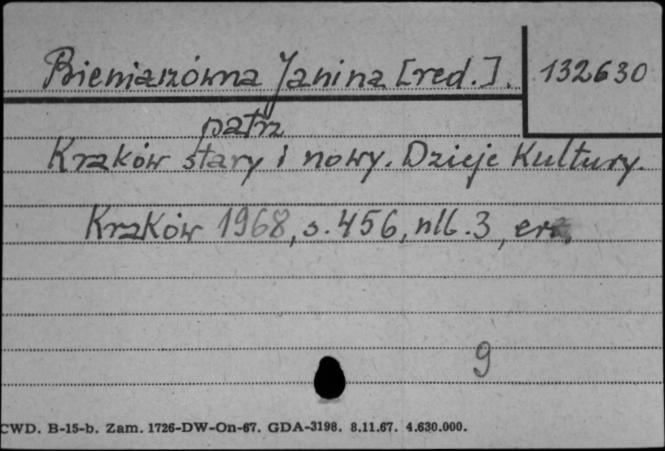 Bieniarzówna Janina [red.]. 132630
patrz
Kraków stary i nowy. Dzieje Kultury.
Kraków 1968, s. 456, nlb. 3,
9
CWD. B-15-b. Zam. 1726-DW-On-67. GDA-3198. 8.11.67. 4.630.000.